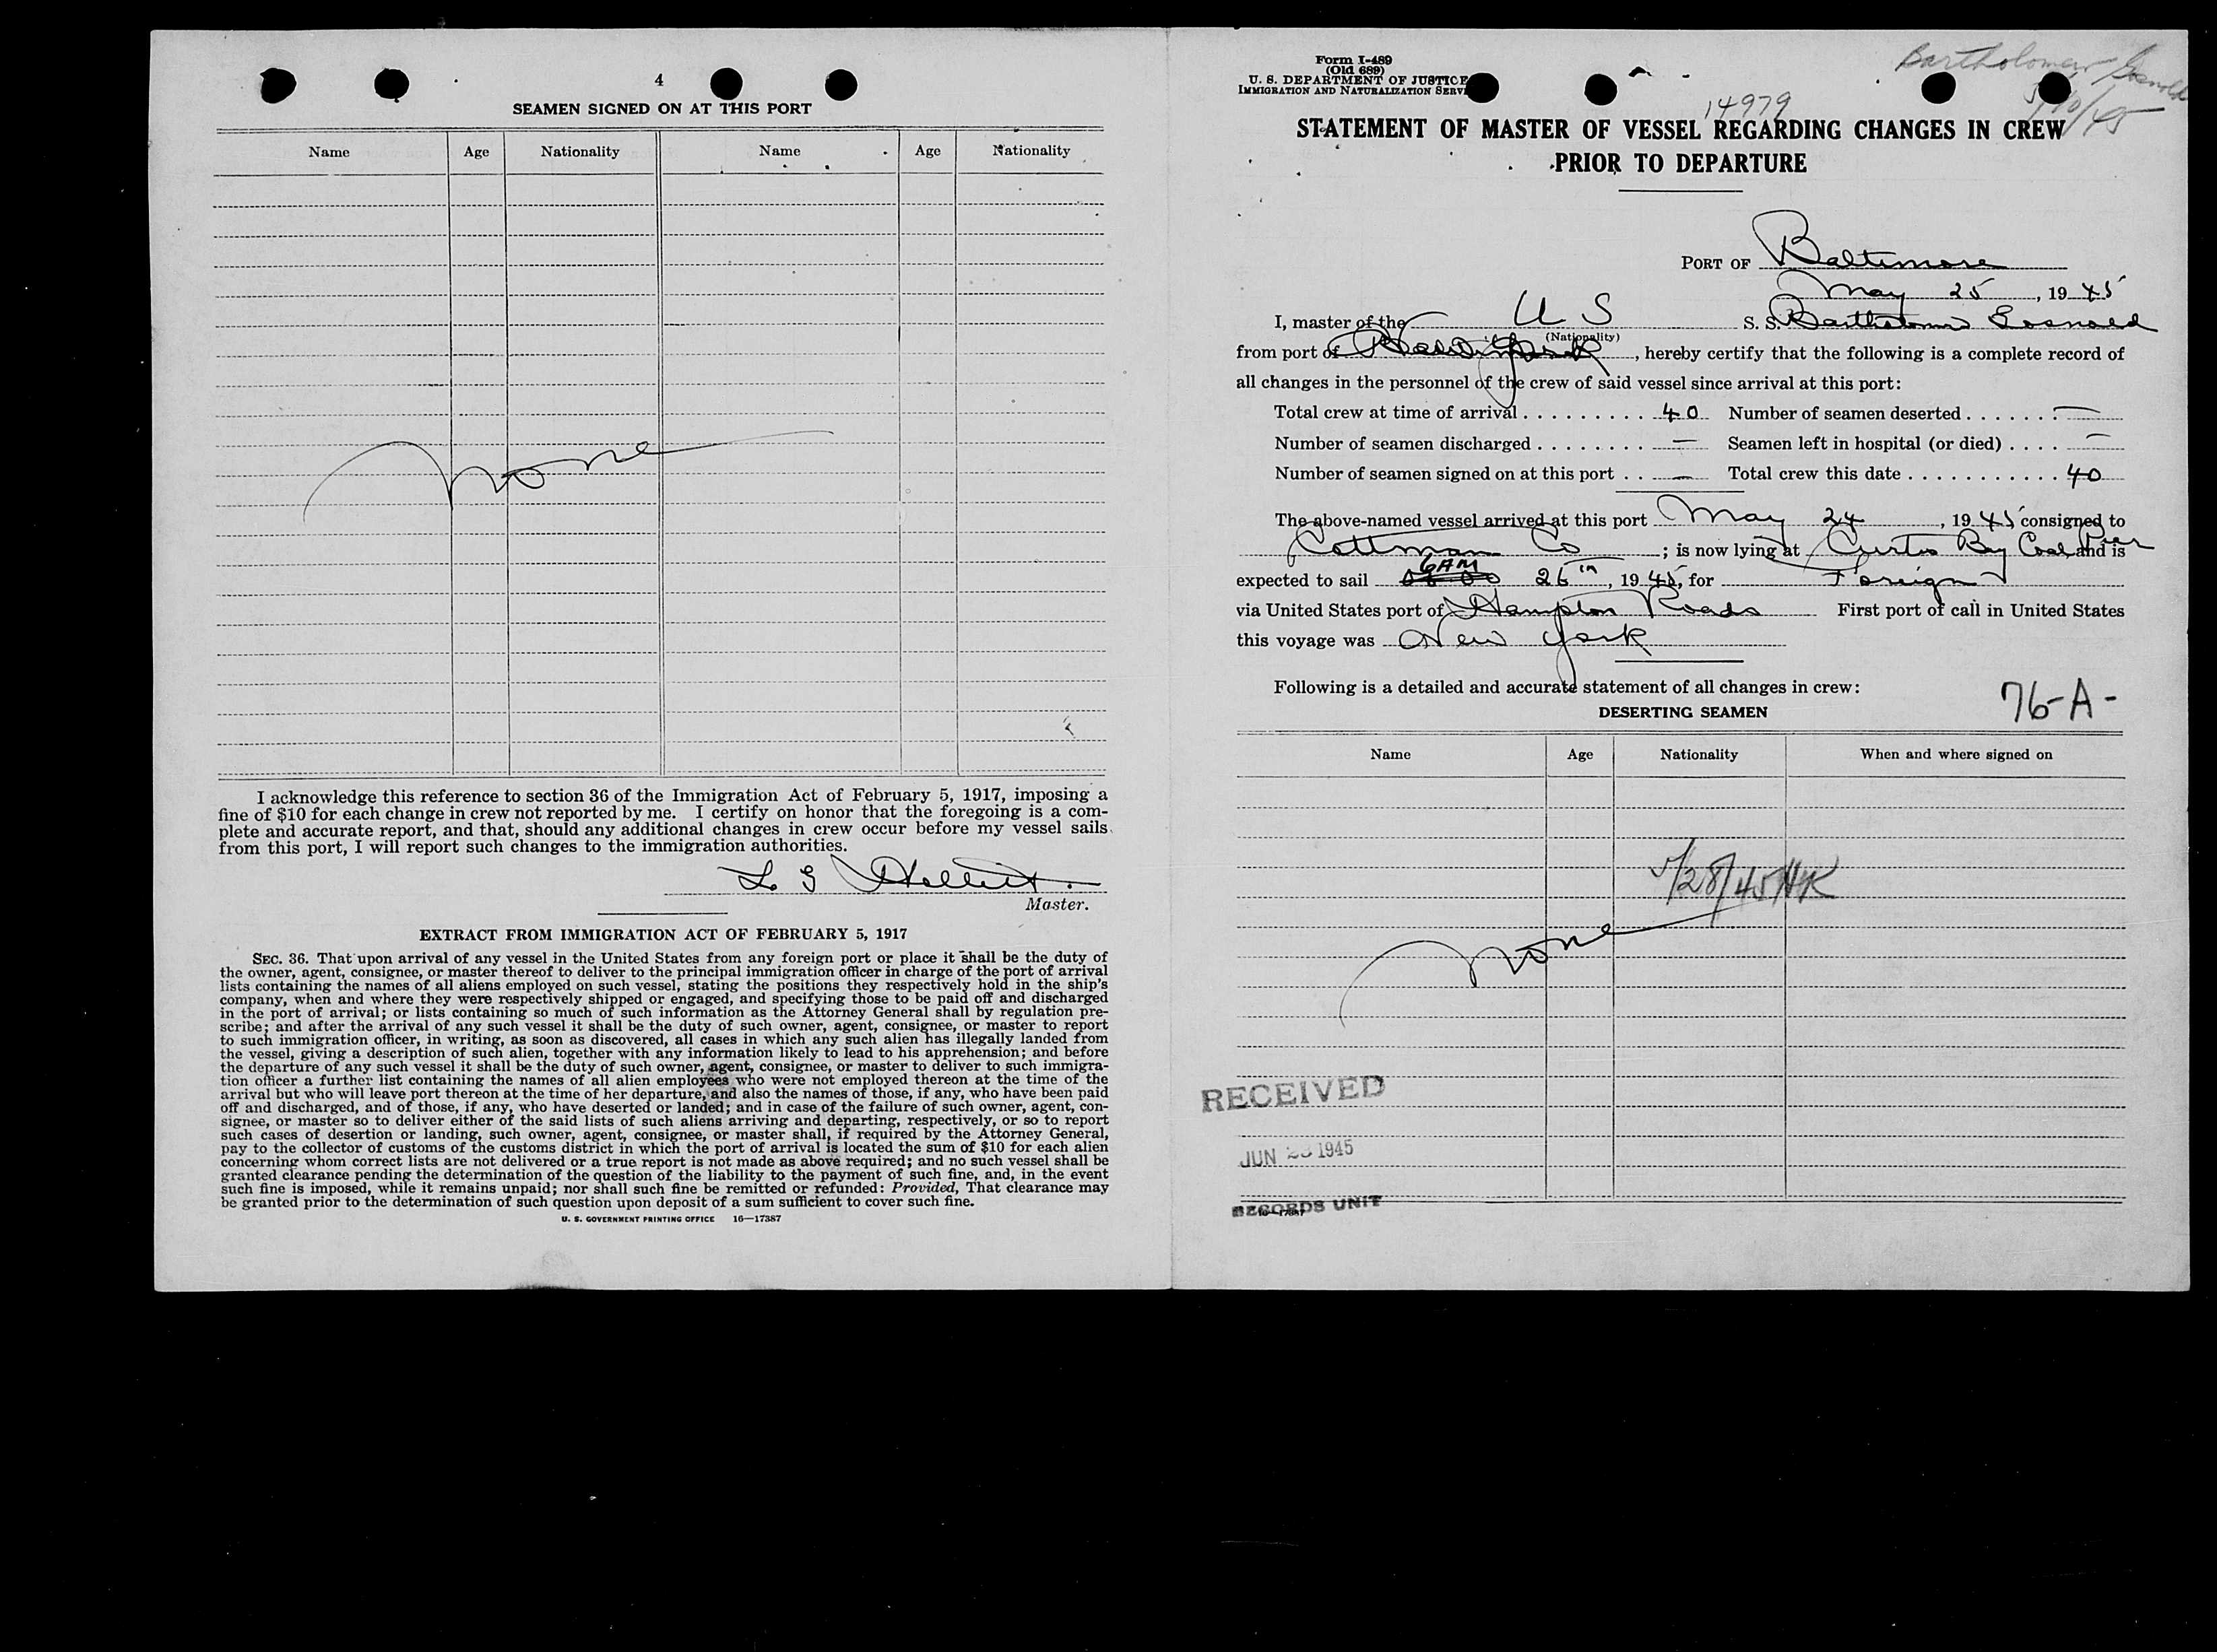 4
SEAMEN SIGNED ON AT THIS PORT
Name Age Nationality Name Age Nationality
None
I acknowledge this reference to section 36 of the Immigration Act of February 5, 1917, imposing a
fine of $10 for each change in crew not reported by me. I certify on honor that the foregoing is a com-
plete and accurate report, and that, should any additional changes in crew occur before my vessel sails
from this port, I will report such changes to the immigration authorities.
L. G
Master.
EXTRACT FROM IMMIGRATION ACT OF FEBRUARY 5, 1917
SEC. 36. That upon arrival of any vessel in the United States from any foreign port or place it shall be the duty of
the owner, agent, consignee, or master thereof to deliver to the principal immigration officer in charge of the port of arrival
lists containing the names of all aliens employed on such vessel, stating the positions they respectively hold in the ship's
company, when and where they were respectively shipped or engaged, and specifying those to be paid off and discharged
in the port of arrival; or lists containing so much of such information as the Attorney General shall by regulation pre-
scribe; and after the arrival of any such vessel it shall be the duty of such owner, agent, consignee, or master to report
to such immigration officer, in writing, as soon as discovered, all cases in which any such alien has illegally landed from
the vessel, giving a description of such alien, together with any information likely to lead to his apprehension; and before
the departure of any such vessel it shall be the duty of such owner, agent, consignee, or master to deliver to such immigra-
tion officer a further list containing the names of all alien employees who were not employed thereon at the time of the
arrival but who will leave port thereon at the time of her departure, and also the names of those, if any, who have been paid
off and discharged, and of those, if any, who have deserted or landed; and in case of the failure of such owner, agent, con-
signee, or master so to deliver either of the said lists of such aliens arriving and departing, respectively, or so to report
such cases of desertion or landing, such owner, agent, consignee, or master shall, if required by the Attorney General,
pay to the collector of customs of the customs district in which the port of arrival is located the sum of $10 for each alien
concerning whom correct lists are not delivered or a true report is not made as above required; and no such vessel shall be
granted clearance pending the determination of the question of the liability to the payment of such fine, and, in the event
such fine is imposed, while it remains unpaid; nor shall such fine be remitted or refunded: Provided, That clearance may
be granted prior to the determination of such question upon deposit of a sum sufficient to cover such fine.
U. S. GOVERNMENT PRINTING OFFICE 16—17387
Form I-489
(Old 689)
U. S. DEPARTMENT OF JUSTICE
IMMIGRATION AND NATURALIZATION SERVI
Bartholomew Gosnold
5/10/45
14979
STATEMENT OF MASTER OF VESSEL REGARDING CHANGES IN CREW
PRIOR TO DEPARTURE
PORT OF Baltimore
May 25, 1945
I, master of the U S S. S. Bartholomew Gosnold
(Nationality)
from port of York, hereby certify that the following is a complete record of
all changes in the personnel of the crew of said vessel since arrival at this port:
Total crew at time of arrival . . . . . . . . . . 40 Number of seamen deserted . . . . . . . —
Number of seamen discharged . . . . . . . . — Seamen left in hospital (or died) . . . . —
Number of seamen signed on at this port . . — Total crew this date . . . . . . . . . . . 40
The above-named vessel arrived at this port May 24, 1945 consigned to
Cottman Co; is now lying at Curtis Bay Coal Pier and is
expected to sail 6AM 26th, 1945, for Foreign
via United States port of Hampton Roads First port of call in United States
this voyage was New York
Following is a detailed and accurate statement of all changes in crew:
76-A-
DESERTING SEAMEN
Name Age Nationality When and where signed on
5/28/45 HK
None
RECEIVED
JUN 1945
RECORDS UNIT
16—17387